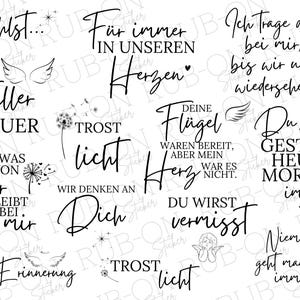 Für immer
IN UNSEREN
Herzen
Ich trage d
bei mir
bis wir u
wiederseh
TROST
licht
DEINE
Flügel
WAREN BEREIT,
ABER MEIN
Herz WAR ES
NICHT.
Du
GEST
HEU
MOR
im
WAS
ON
LEIBT
BEI
mir
WIR DENKEN AN
Dich
DU WIRST
vermisst
Erinnerung
TROST
licht
Niem
geht ma
imm